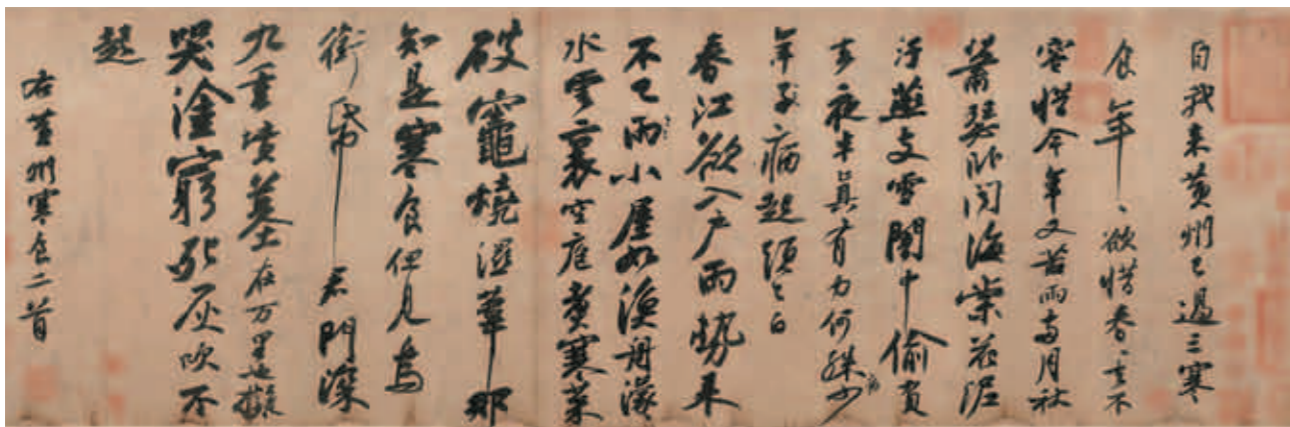 自我来黄州已過三寒
食年、欲惜春、去不
容惜今年又苦雨兩月秋
蕭瑟卧聞海棠花泥
汙燕支雪闇中偷負
去夜半真有力何殊少病
年子病起須已白
春江欲入户雨勢来
不已雨小屋如漁舟濛
水雲裏空庖煑寒菜
破竈燒濕葦那
知是寒食但見烏
銜帋君門深
九重墳墓在万里也擬
哭塗窮死灰吹不
起
右黄州寒食二首